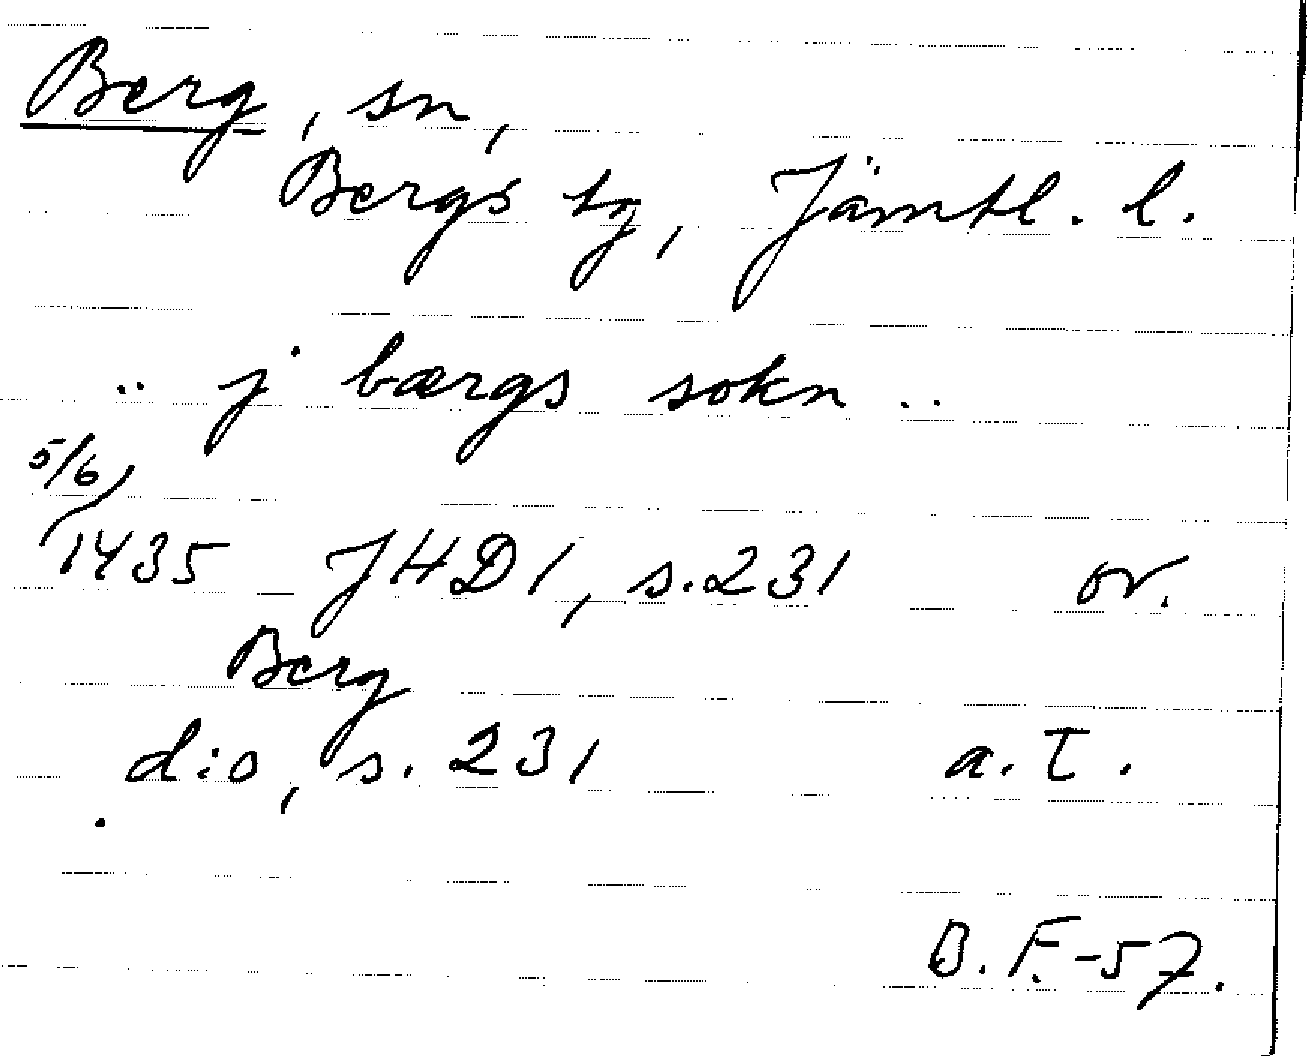 Berg, sn,
Bergs tg, Jämtl. l.
.. j bærgs sokn ..
5/6
1435 JHD 1, s. 231 or.
Berg
d:o, s. 231 a. T.
B. F. -57.